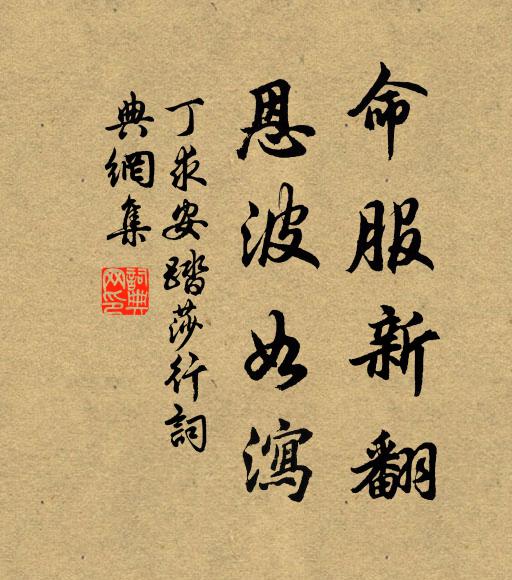 命服新翻
恩波如瀉
丁求安踏莎行詞
典網集
詞典網印